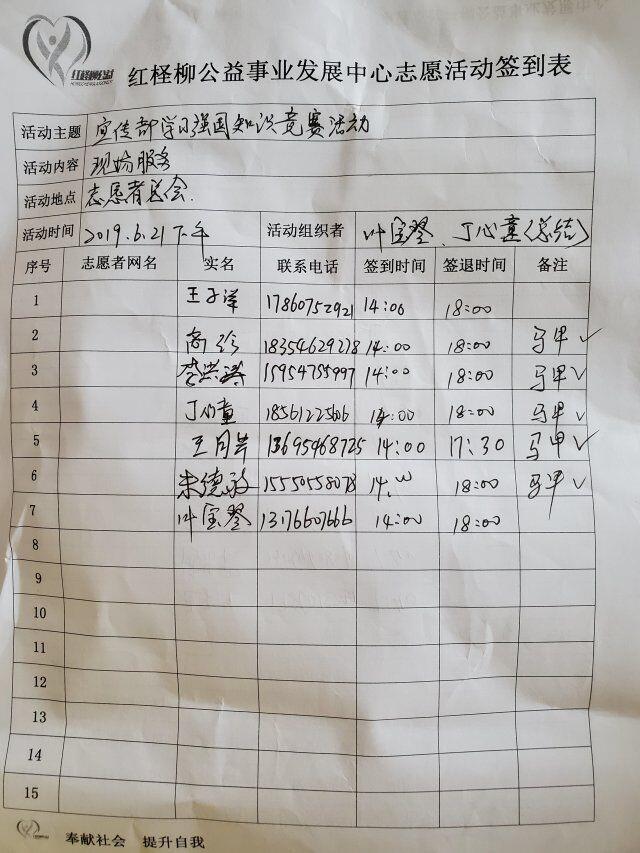 红柽柳公益事业发展中心志愿活动签到表
活动主题 宣传部学习强国知识竞赛活动
活动内容 现场服务
活动地点 志愿者总会.
活动时间 2019.6.21下午 活动组织者 叶宝琴、丁心童(总结)
序号 志愿者网名 实名 联系电话 签到时间 签退时间 备注
1 王子洋 17860752921 14:00 18:00
2 高珍 18354629278 14:00 18:00 马甲✓
3 李洪涛 15954755997 14:00 18:00 马甲✓
4 丁心童 18561225606 14:00 18:00 马甲✓
5 王同兰 13695468725 14:00 17:30 马甲✓
6 朱德敏 15550558078 14:00 18:00 马甲✓
7 叶宝琴 13176607666 14:00 18:00
8
9
10
11
12
13
14
15
奉献社会 提升自我